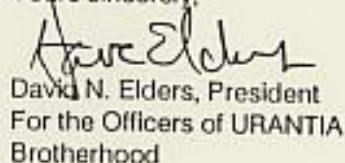 Dave Elders
David N. Elders, President
For the Officers of URANTIA
Brotherhood